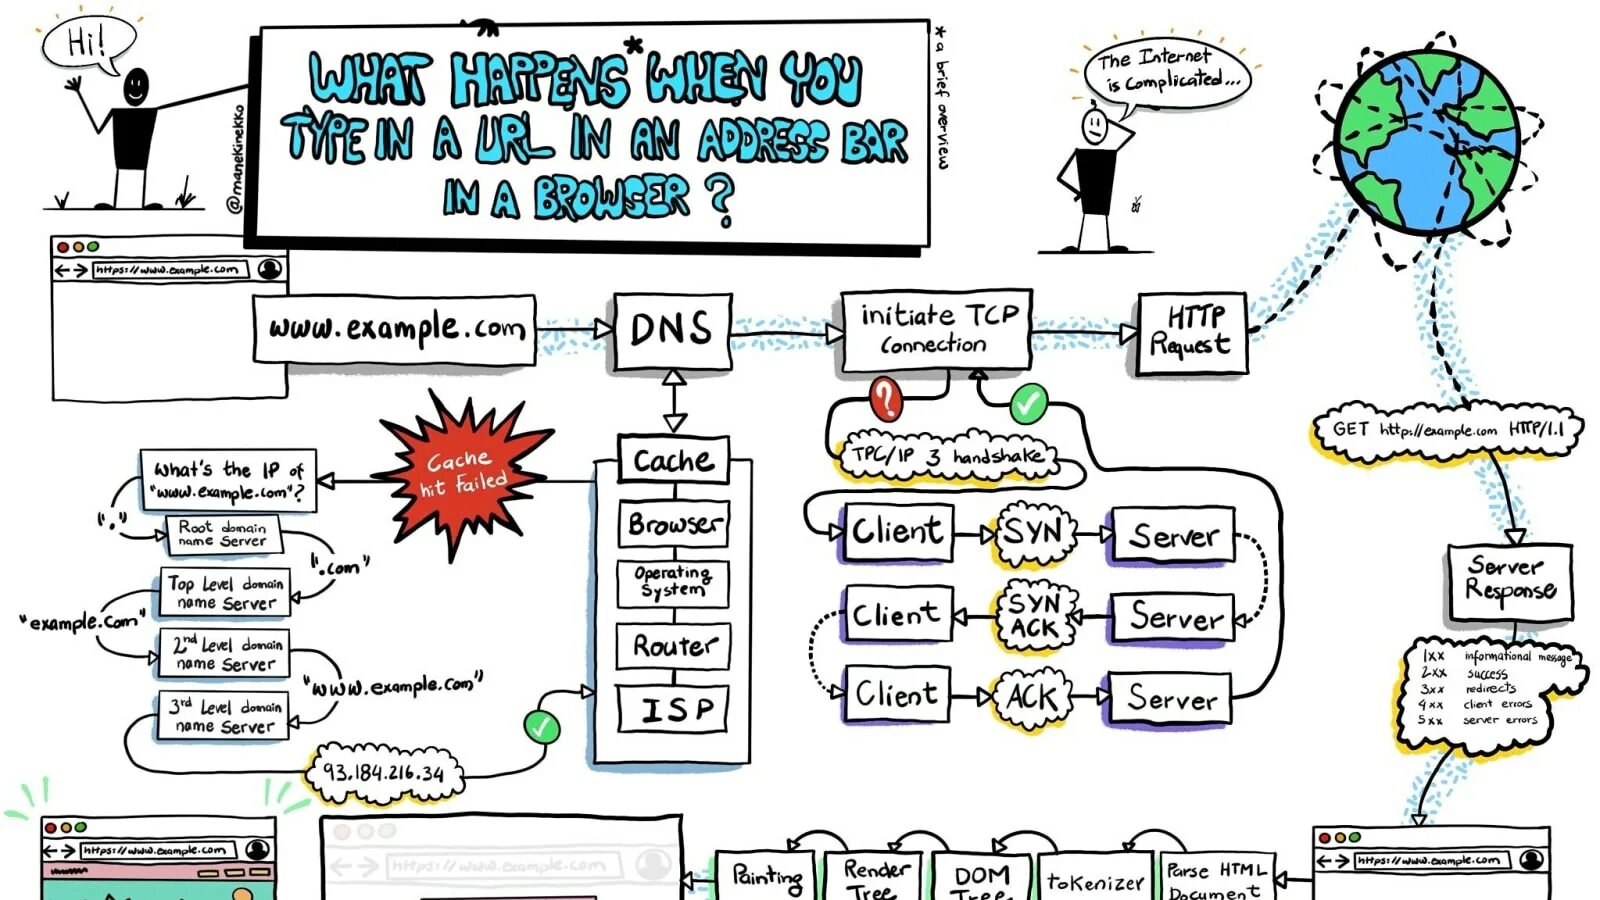 Hi!
@manekinekko
WHAT HAPPENS* WHEN YOU
TYPE IN A URL IN AN ADDRESS BAR
IN A BROWSER ?
* a brief overview
The Internet
is complicated...
https://www.example.com
www.example.com
DNS
initiate TCP
Connection
HTTP
Request
GET http://example.com HTTP/1.1
Server
Response
1xx informational message
2xx success
3xx redirects
4xx client errors
5xx server errors
Cache
hit Failed
Cache
Browser
Operating
System
Router
ISP
What's the IP of
"www.example.com"?
"."
Root domain
name Server
".com"
Top Level domain
name Server
"example.com"
2nd Level domain
name Server
"www.example.com"
3rd Level domain
name Server
93.184.216.34
?
TPC/IP 3 handshake
Client
SYN
Server
Client
SYN
ACK
Server
Client
ACK
Server
https://www.example.com
https://www.example.com
Painting
Render
Tree
DOM
Tree
tokenizer
Parse HTML
Document
https://www.example.com